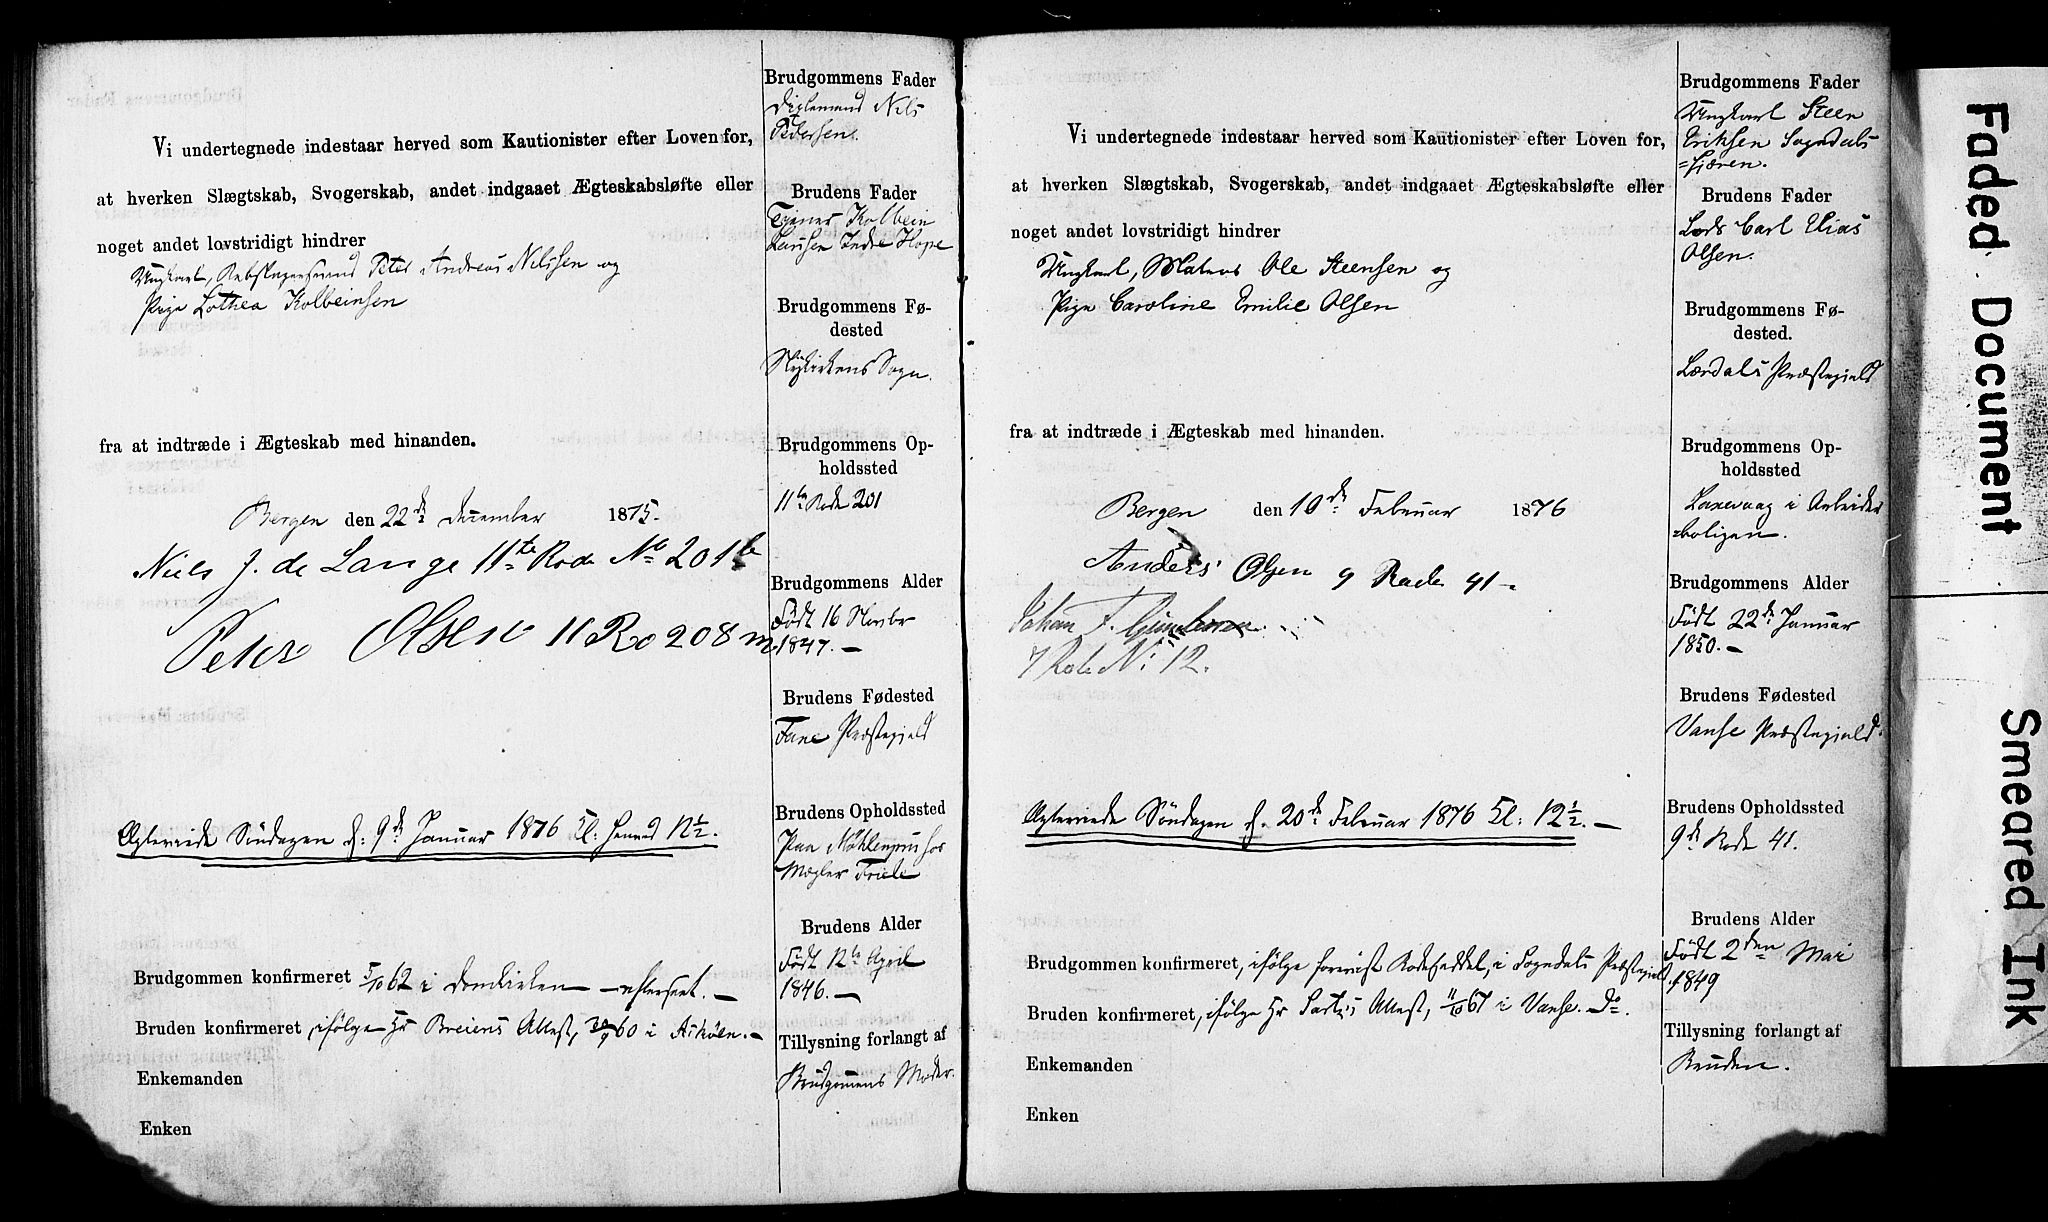 Vi undertegnede indestaar herved som Kautionister efter Loven for,
at hverken Slægtskab, Svogerskab, andet indgaaet Ægteskabsløfte eller
noget andet lovstridigt hindrer
Ungkarl, Peter Andreas Nilssen og
Pige Lothea Kolbeinsen
fra at indtræde i Ægteskab med hinanden.
Bergen den 22de December 1875.
Niels J. de Lange 11te Rode No 201b
Peter Olsen 11 Ro 208 m
Ægteviede Söndagen d: 9de Januar 1876 Kl: 12½.
Brudgommen konfirmeret 5/10 62 i Domkirken – efterseet. –
Bruden konfirmeret, ifölge Hr Breiens Attest, 30/9 60 i Askøen. –
Enkemanden
Enken
Brudgommens Fader
Nils
Petersen.
Brudens Fader
Kolbein
Larsen Indre Hope
Brudgommens Fø-
dested
Nykirkens Sogn.
Brudgommens Op-
holdssted
11te Rode 201
Brudgommens Alder
Födt 16 Novbr
1847. –
Brudens Fødested
Fane Præstegjeld
Brudens Opholdssted
Paa Möhlenpris hos
Mægler Friele
Brudens Alder
Födt 12te April
1846. –
Tillysning forlangt af
Brudgommens Moder.
Vi undertegnede indestaar herved som Kautionister efter Loven for,
at hverken Slægtskab, Svogerskab, andet indgaaet Ægteskabsløfte eller
noget andet lovstridigt hindrer
Ungkarl, Matros Ole Steensen og
Pige Caroline Emilie Olsen
fra at indtræde i Ægteskab med hinanden.
Bergen den 10de Februar 1876
Anders Olsen 9 Rode 41 –
Johan F.
7 Rode No 12.
Ægteviede Söndagen d. 20de Februar 1876 Kl: 12½. –
Brudgommen konfirmeret, ifölge forevist Rodeseddel, i Sogndals Præstegjeld.
Bruden konfirmeret, ifölge Hr Attest, 11/10 67 i Vanse. Do.
Enkemanden
Enken
Brudgommens Fader
Ungkarl Steen
Eriksen Sogndals
=fjæren.
Brudens Fader
Lods Carl Elias
Olsen.
Brudgommens Fø-
dested.
Lærdals Præstegjeld
Brudgommens Op-
holdssted
Laxevaag i Arbeider
=boligen.
Brudgommens Alder
Födt 22de Januar
1850. –
Brudens Fødested
Vanse Præstegjeld.
Brudens Opholdssted
9de Rode 41.
Brudens Alder
Födt 2den Mai
1849
Tillysning forlangt af
Bruden.
Faded Document
Smeared Ink